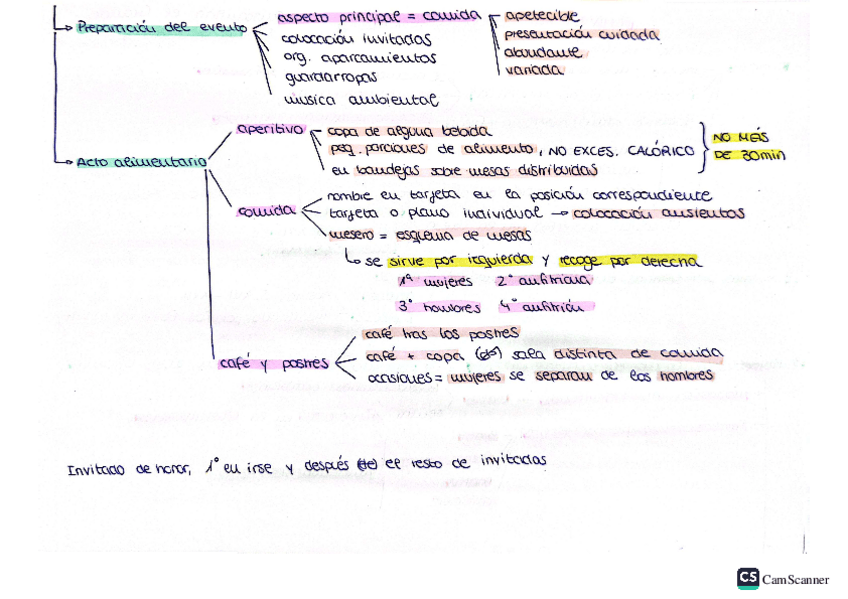 Preparación del evento
aspecto principal = comida
apetecible
presentación cuidada
abundante
variada
colocación invitados
org. aparcamientos
guardarropas
música ambiental
Acto alimentario
aperitivo
copa de alguna bebida
peq. porciones de alimento, NO EXCES. CALÓRICO
en bandejas sobre mesas distribuidas
NO MÁS
DE 30min
comida
nombre en tarjeta en la posición correspondiente
tarjeta o plano individual → colocación asientos
mesero = esquema de mesas
↳ se sirve por izquierda y recoge por derecha
1º mujeres 2º anfitriona
3º hombres 4º anfitrión
café y postres
café tras los postres
café + copa sala distinta de comida
ocasiones = mujeres se separan de los hombres
Invitado de honor, 1º en irse y después el resto de invitados
CS CamScanner